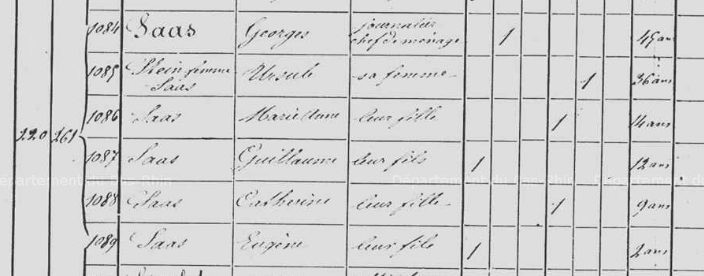 1084 Saas Georges journalier
chef de ménage 1 45 ans
1085 Klein femme
Saas Ursule sa femme 1 36 ans
1086 Saas Marie Anne leur fille 1 14 ans
220 261
1087 Saas Guillaume leur fils 1 12 ans
Département du Bas-Rhin
1088 Saas Catherine leur fille 1 9 ans
1089 Saas Eugène leur fils 1 2 ans